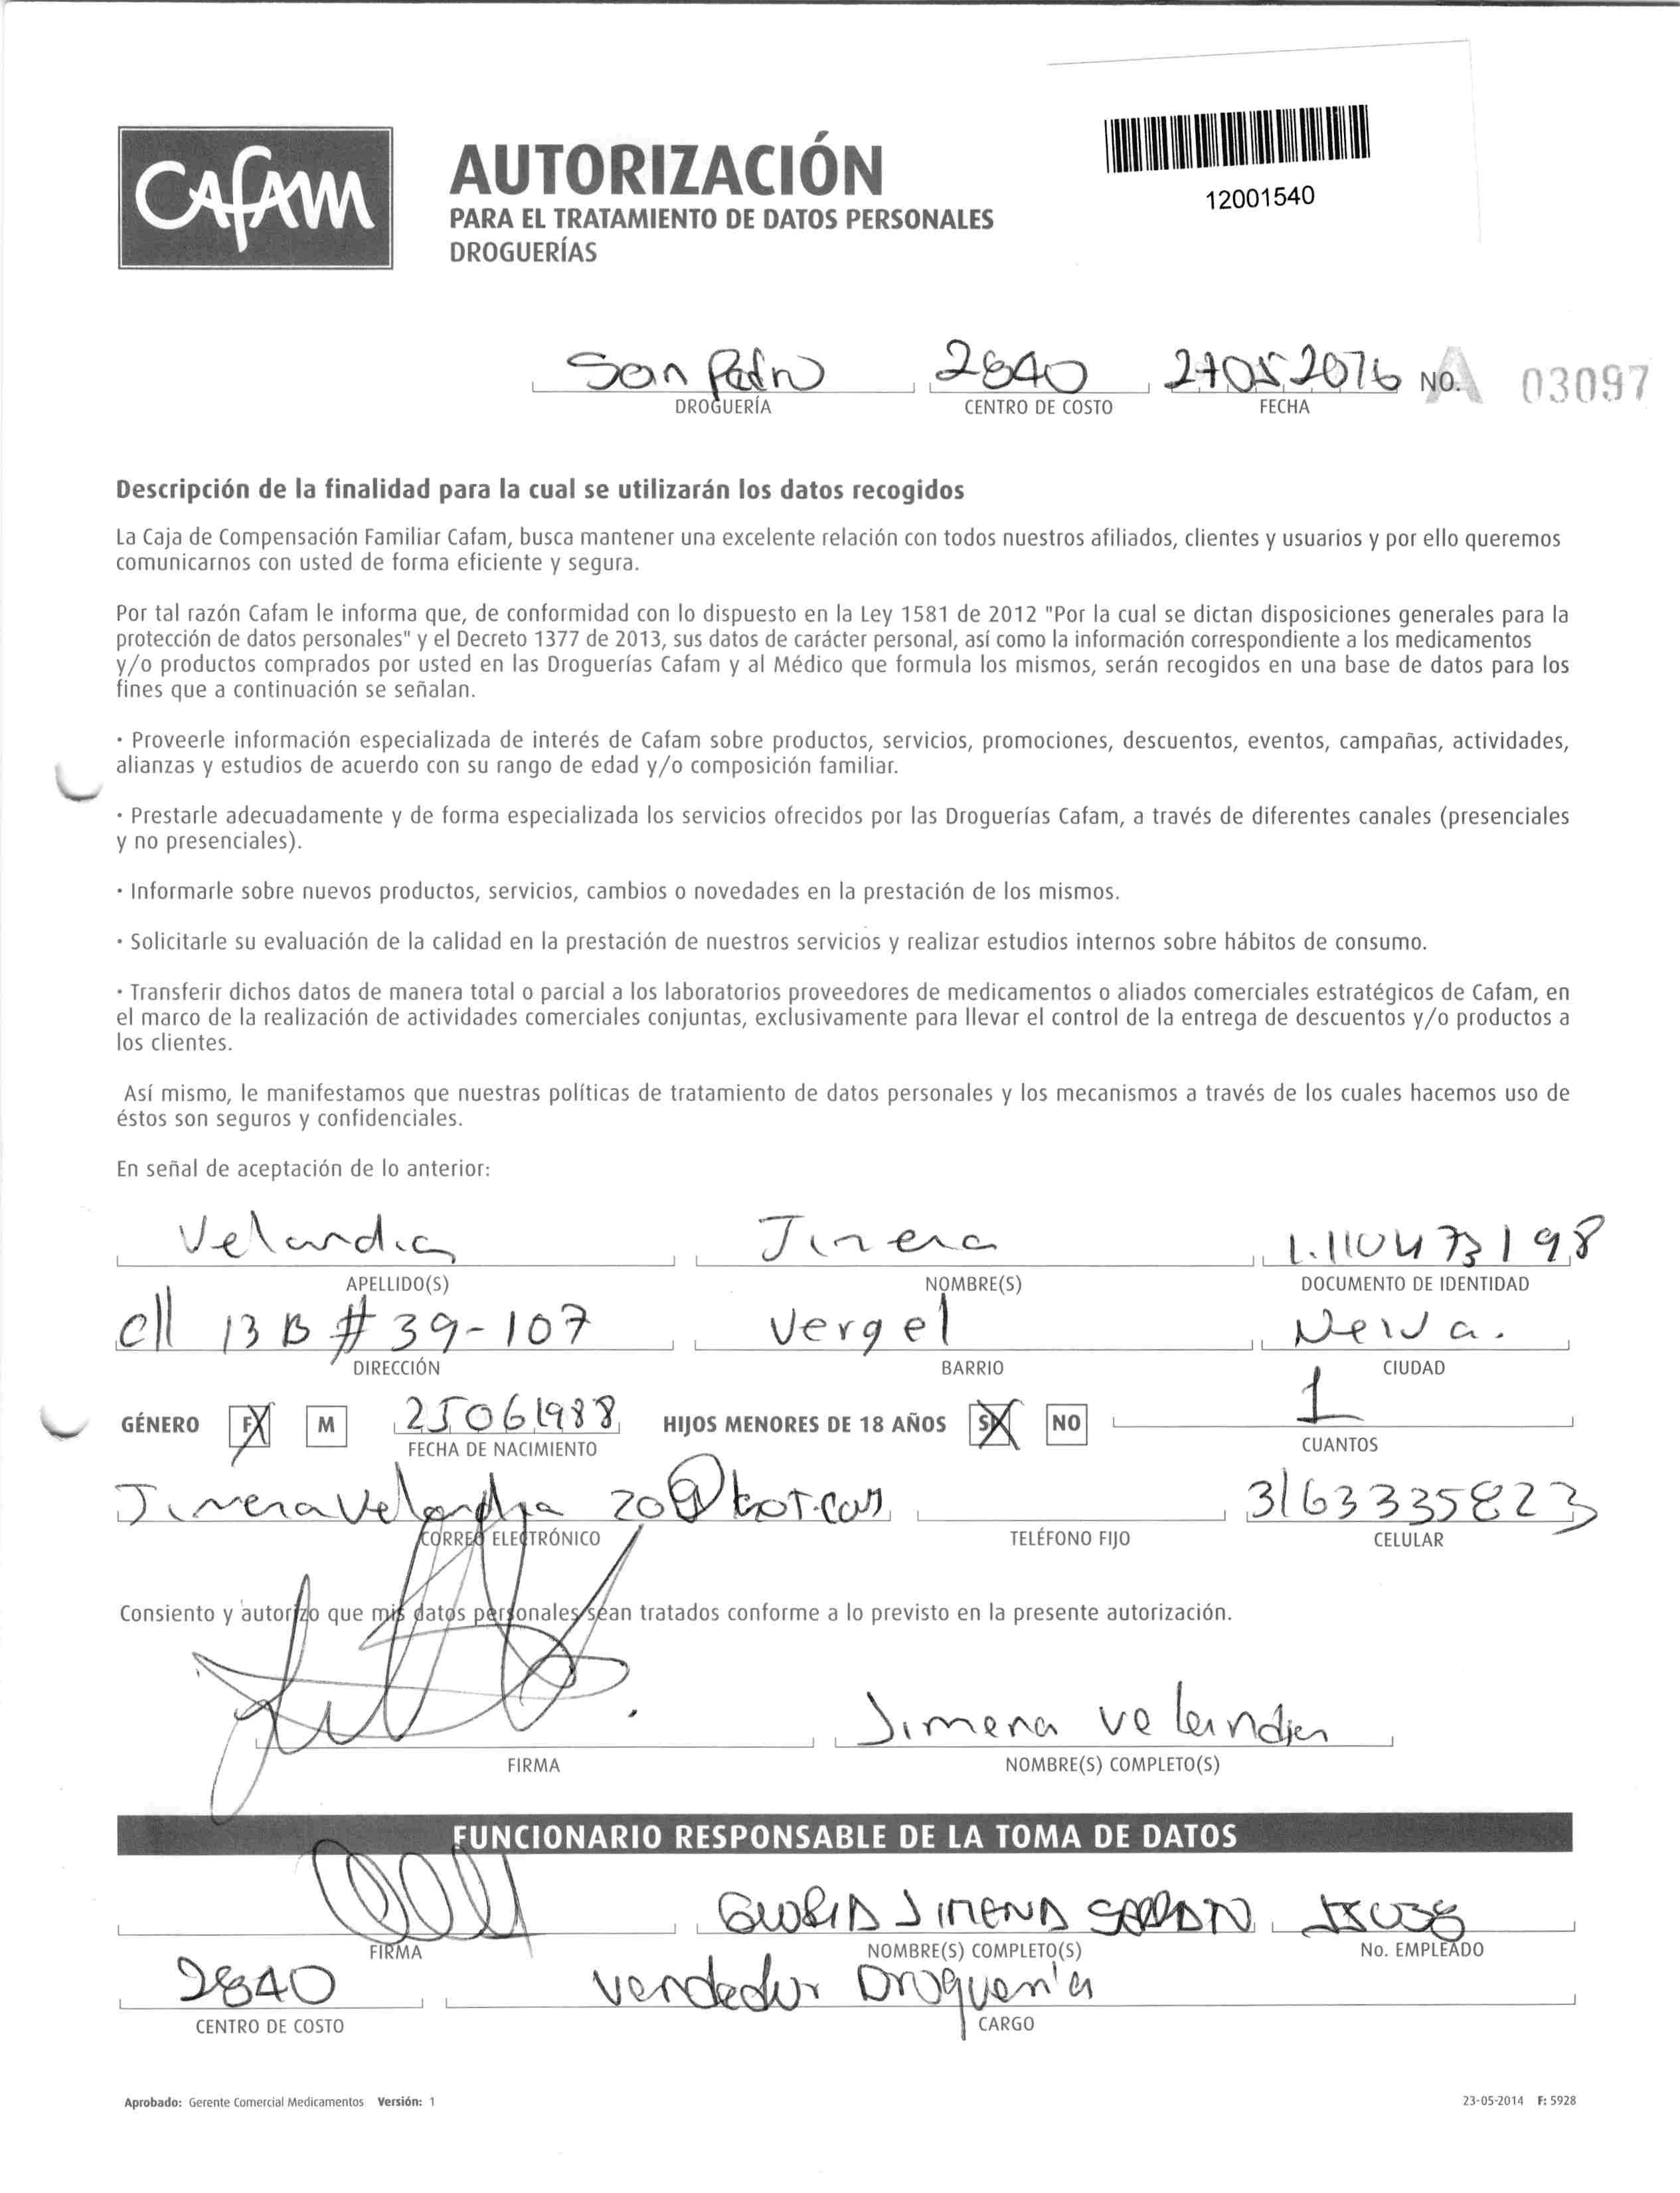 CAFAM
AUTORIZACIÓN
PARA EL TRATAMIENTO DE DATOS PERSONALES
DROGUERÍAS
12001540
San Pedro 2840 27052016 NO. A 03097
DROGUERÍA CENTRO DE COSTO FECHA
Descripción de la finalidad para la cual se utilizarán los datos recogidos
La Caja de Compensación Familiar Cafam, busca mantener una excelente relación con todos nuestros afiliados, clientes y usuarios y por ello queremos
comunicarnos con usted de forma eficiente y segura.
Por tal razón Cafam le informa que, de conformidad con lo dispuesto en la Ley 1581 de 2012 "Por la cual se dictan disposiciones generales para la
protección de datos personales" y el Decreto 1377 de 2013, sus datos de carácter personal, así como la información correspondiente a los medicamentos
y/o productos comprados por usted en las Droguerías Cafam y al Médico que formula los mismos, serán recogidos en una base de datos para los
fines que a continuación se señalan.
· Proveerle información especializada de interés de Cafam sobre productos, servicios, promociones, descuentos, eventos, campañas, actividades,
alianzas y estudios de acuerdo con su rango de edad y/o composición familiar.
· Prestarle adecuadamente y de forma especializada los servicios ofrecidos por las Droguerías Cafam, a través de diferentes canales (presenciales
y no presenciales).
· Informarle sobre nuevos productos, servicios, cambios o novedades en la prestación de los mismos.
· Solicitarle su evaluación de la calidad en la prestación de nuestros servicios y realizar estudios internos sobre hábitos de consumo.
· Transferir dichos datos de manera total o parcial a los laboratorios proveedores de medicamentos o aliados comerciales estratégicos de Cafam, en
el marco de la realización de actividades comerciales conjuntas, exclusivamente para llevar el control de la entrega de descuentos y/o productos a
los clientes.
Así mismo, le manifestamos que nuestras políticas de tratamiento de datos personales y los mecanismos a través de los cuales hacemos uso de
éstos son seguros y confidenciales.
En señal de aceptación de lo anterior:
Velandia Jimena 1.110473198
APELLIDO(S) NOMBRE(S) DOCUMENTO DE IDENTIDAD
Cll 13 B # 39-107 Vergel Neiva.
DIRECCIÓN BARRIO CIUDAD
GÉNERO F M 25061988 HIJOS MENORES DE 18 AÑOS SI NO 1
FECHA DE NACIMIENTO CUANTOS
Jimenavelandia20@hot.com 3163335823
CORREO ELECTRÓNICO TELÉFONO FIJO CELULAR
Consiento y autorizo que mis datos personales sean tratados conforme a lo previsto en la presente autorización.
Jimena Velandia
FIRMA NOMBRE(S) COMPLETO(S)
FUNCIONARIO RESPONSABLE DE LA TOMA DE DATOS
GLORIA JIMENA
FIRMA NOMBRE(S) COMPLETO(S) No. EMPLEADO
2840 Vendedor Droguería
CENTRO DE COSTO CARGO
Aprobado: Gerente Comercial Medicamentos Versión: 1 23-05-2014 F: 5928